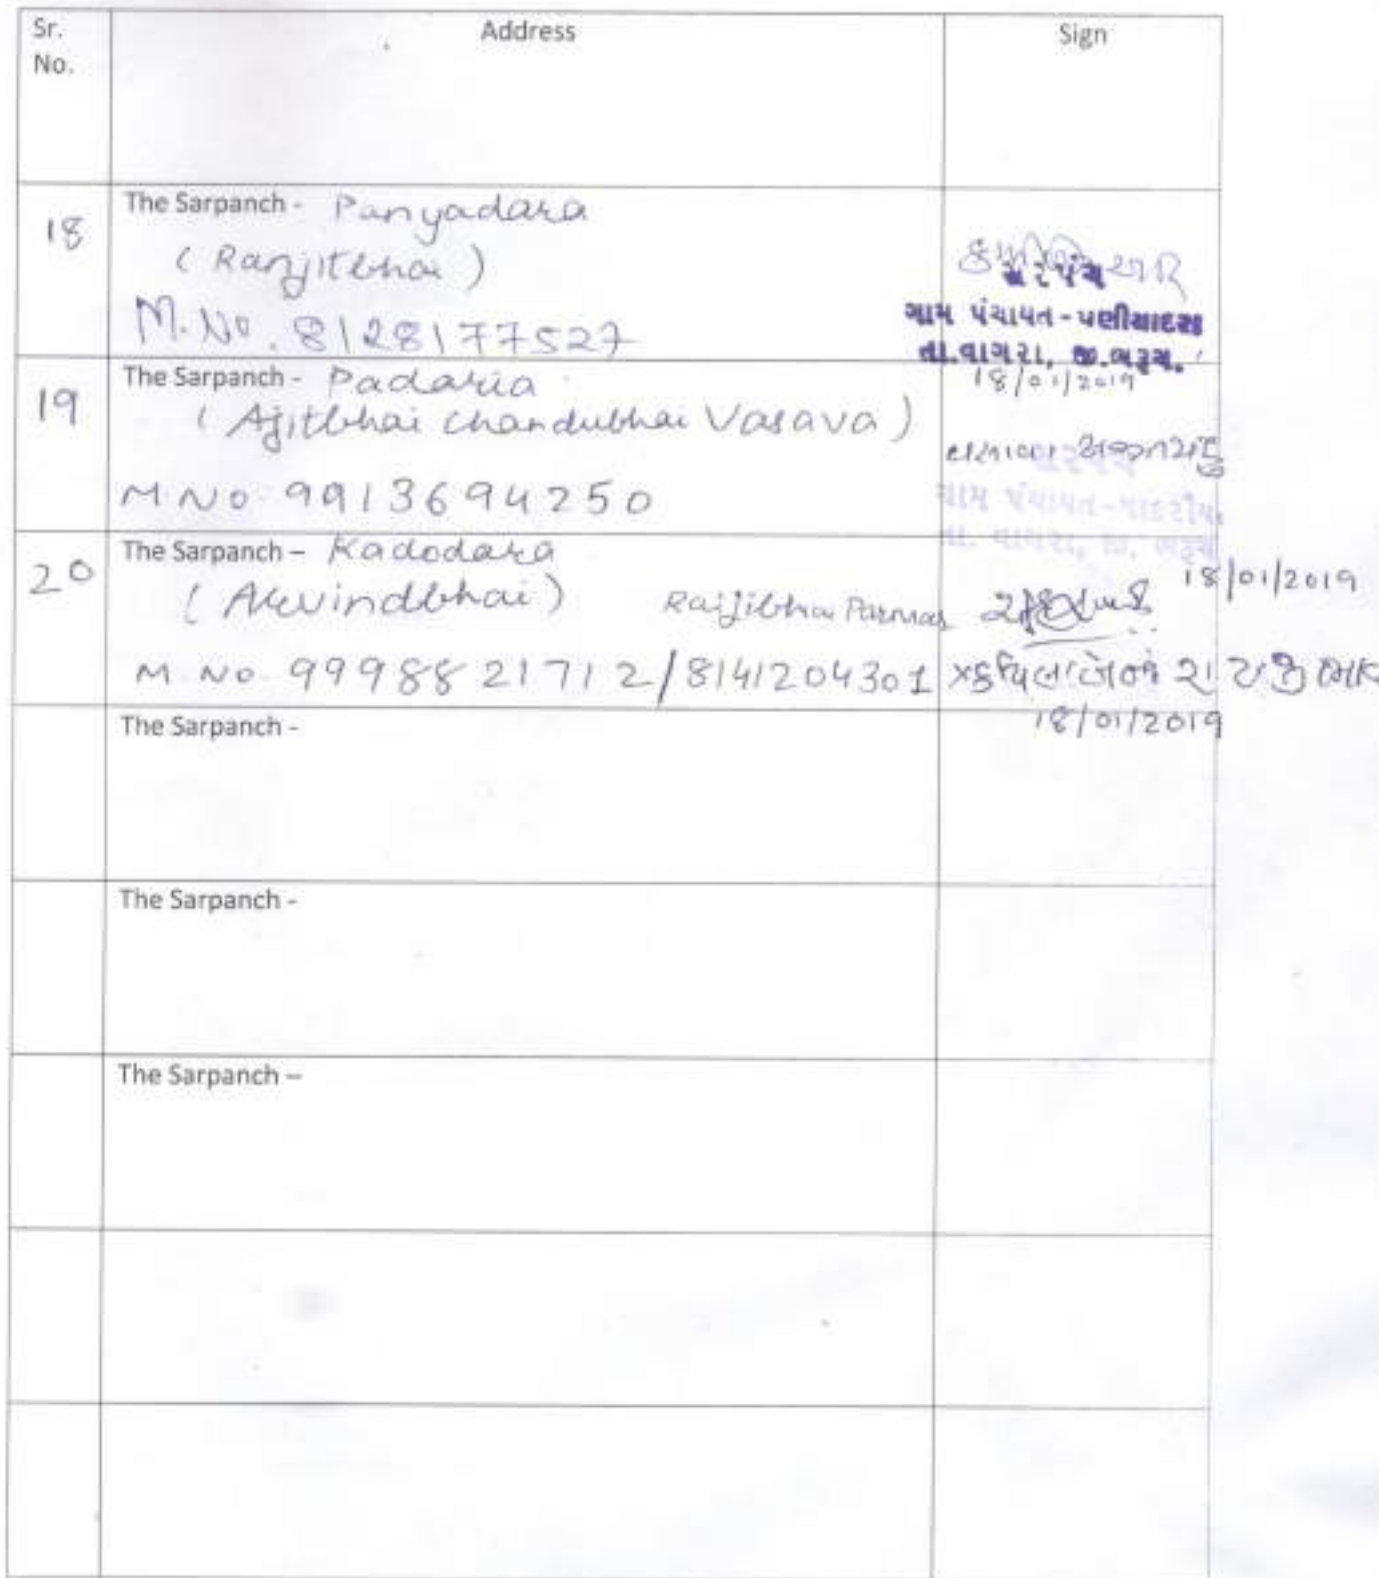 Sr.
No.
Address
Sign
18
The Sarpanch - Panyadara
(Ranjitbhai)
M. No. 8128177527
સરપંચ
ગામ પંચાયત - પણીયાદરા
તા.વાગરા, જી.ભરૂચ.
18/01/2019
19
The Sarpanch - Padaria
(Ajitbhai Chandubhai Vasava)
M No 9913694250
વસાવા
સરપંચ
ગામ પંચાયત - પાદરીયા
તા. વાગરા, જી. ભરૂચ
18/01/2019
20
The Sarpanch – Kadodara
(Arvindbhai) Raijibhai Parmar
M. No. 9998821712/8141204301
18/01/2019
The Sarpanch -
The Sarpanch -
The Sarpanch –